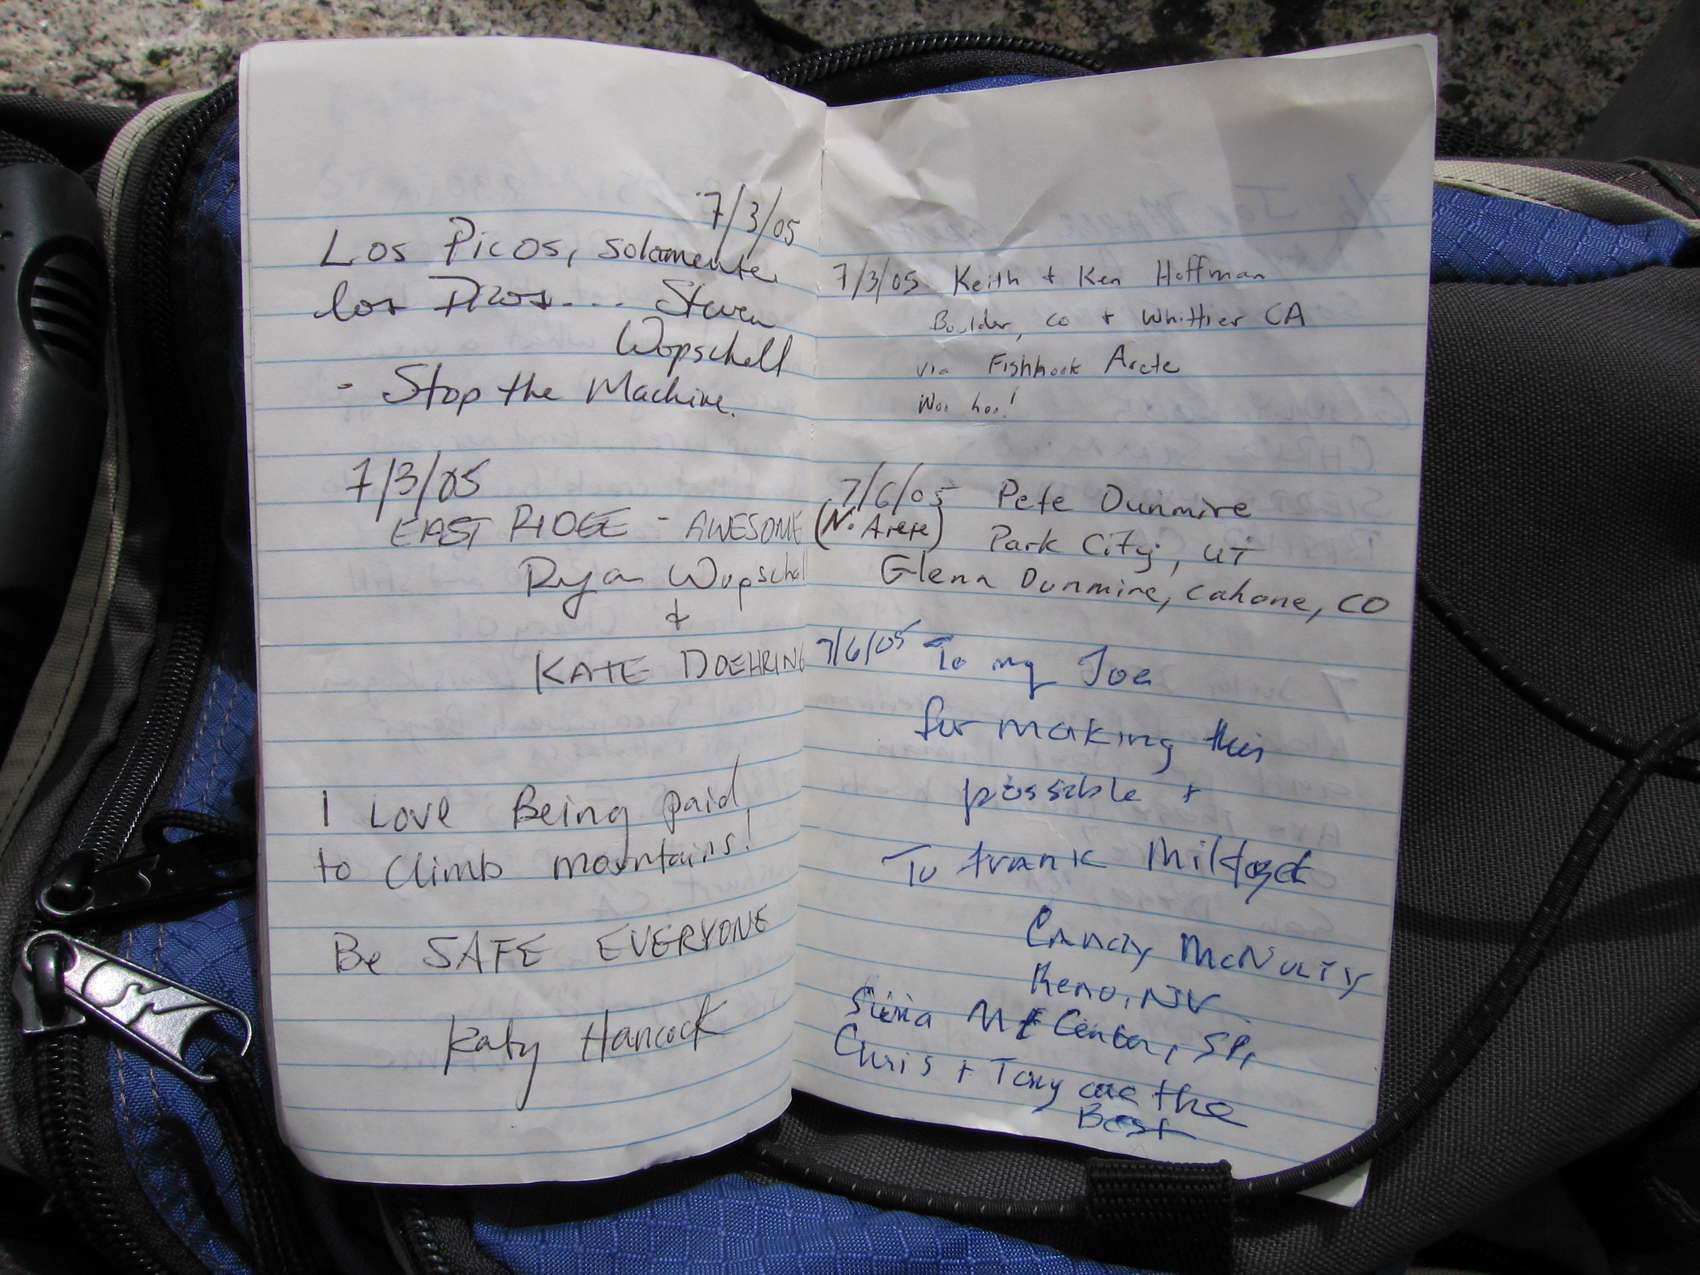 7/3/05
Los Picos, solamente
los Picos... Steven
Wopschall
- Stop the Machine.
7/3/05
EAST RIDGE - AWESOME
Ryan Wopschall
+
KATE DOEHRING
I Love Being paid
to climb mountains!
Be SAFE EVERYONE
Katy Hancock
7/3/05 Keith + Ken Hoffman
Boulder, CO + Whittier CA
via Fishhook Arete
Woo hoo!
7/6/05 Pete Dunmire
(N. Arete) Park City, UT
Glenn Dunmire, Cahone, CO
7/6/05 To my Joe
for making this
possible +
To Frank
Candy McNulty
Reno, NV
Mt Center, SP,
Chris + Tony are the
Best